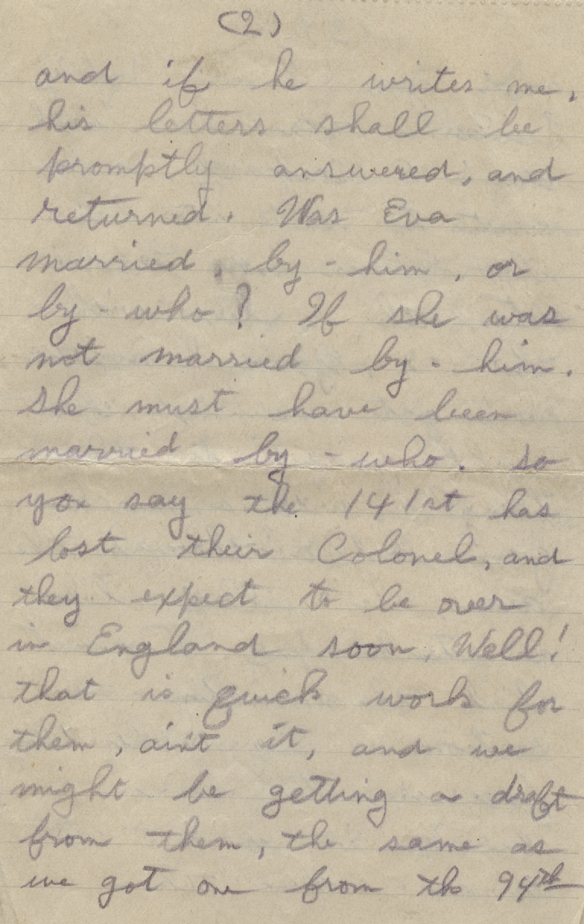 (2)
and if he writes me,
his letters shall be
promptly answered, and
returned. Was Eva
married, by - him, or
by - who? If she was
not married by - him.
She must have been
married by - who. So
you say the 141st has
lost their Colonel, and
they expect to be over
in England soon. Well!
that is quick work for
them, ain't it, and we
might be getting a draft
from them, the same as
we got one from the 94th